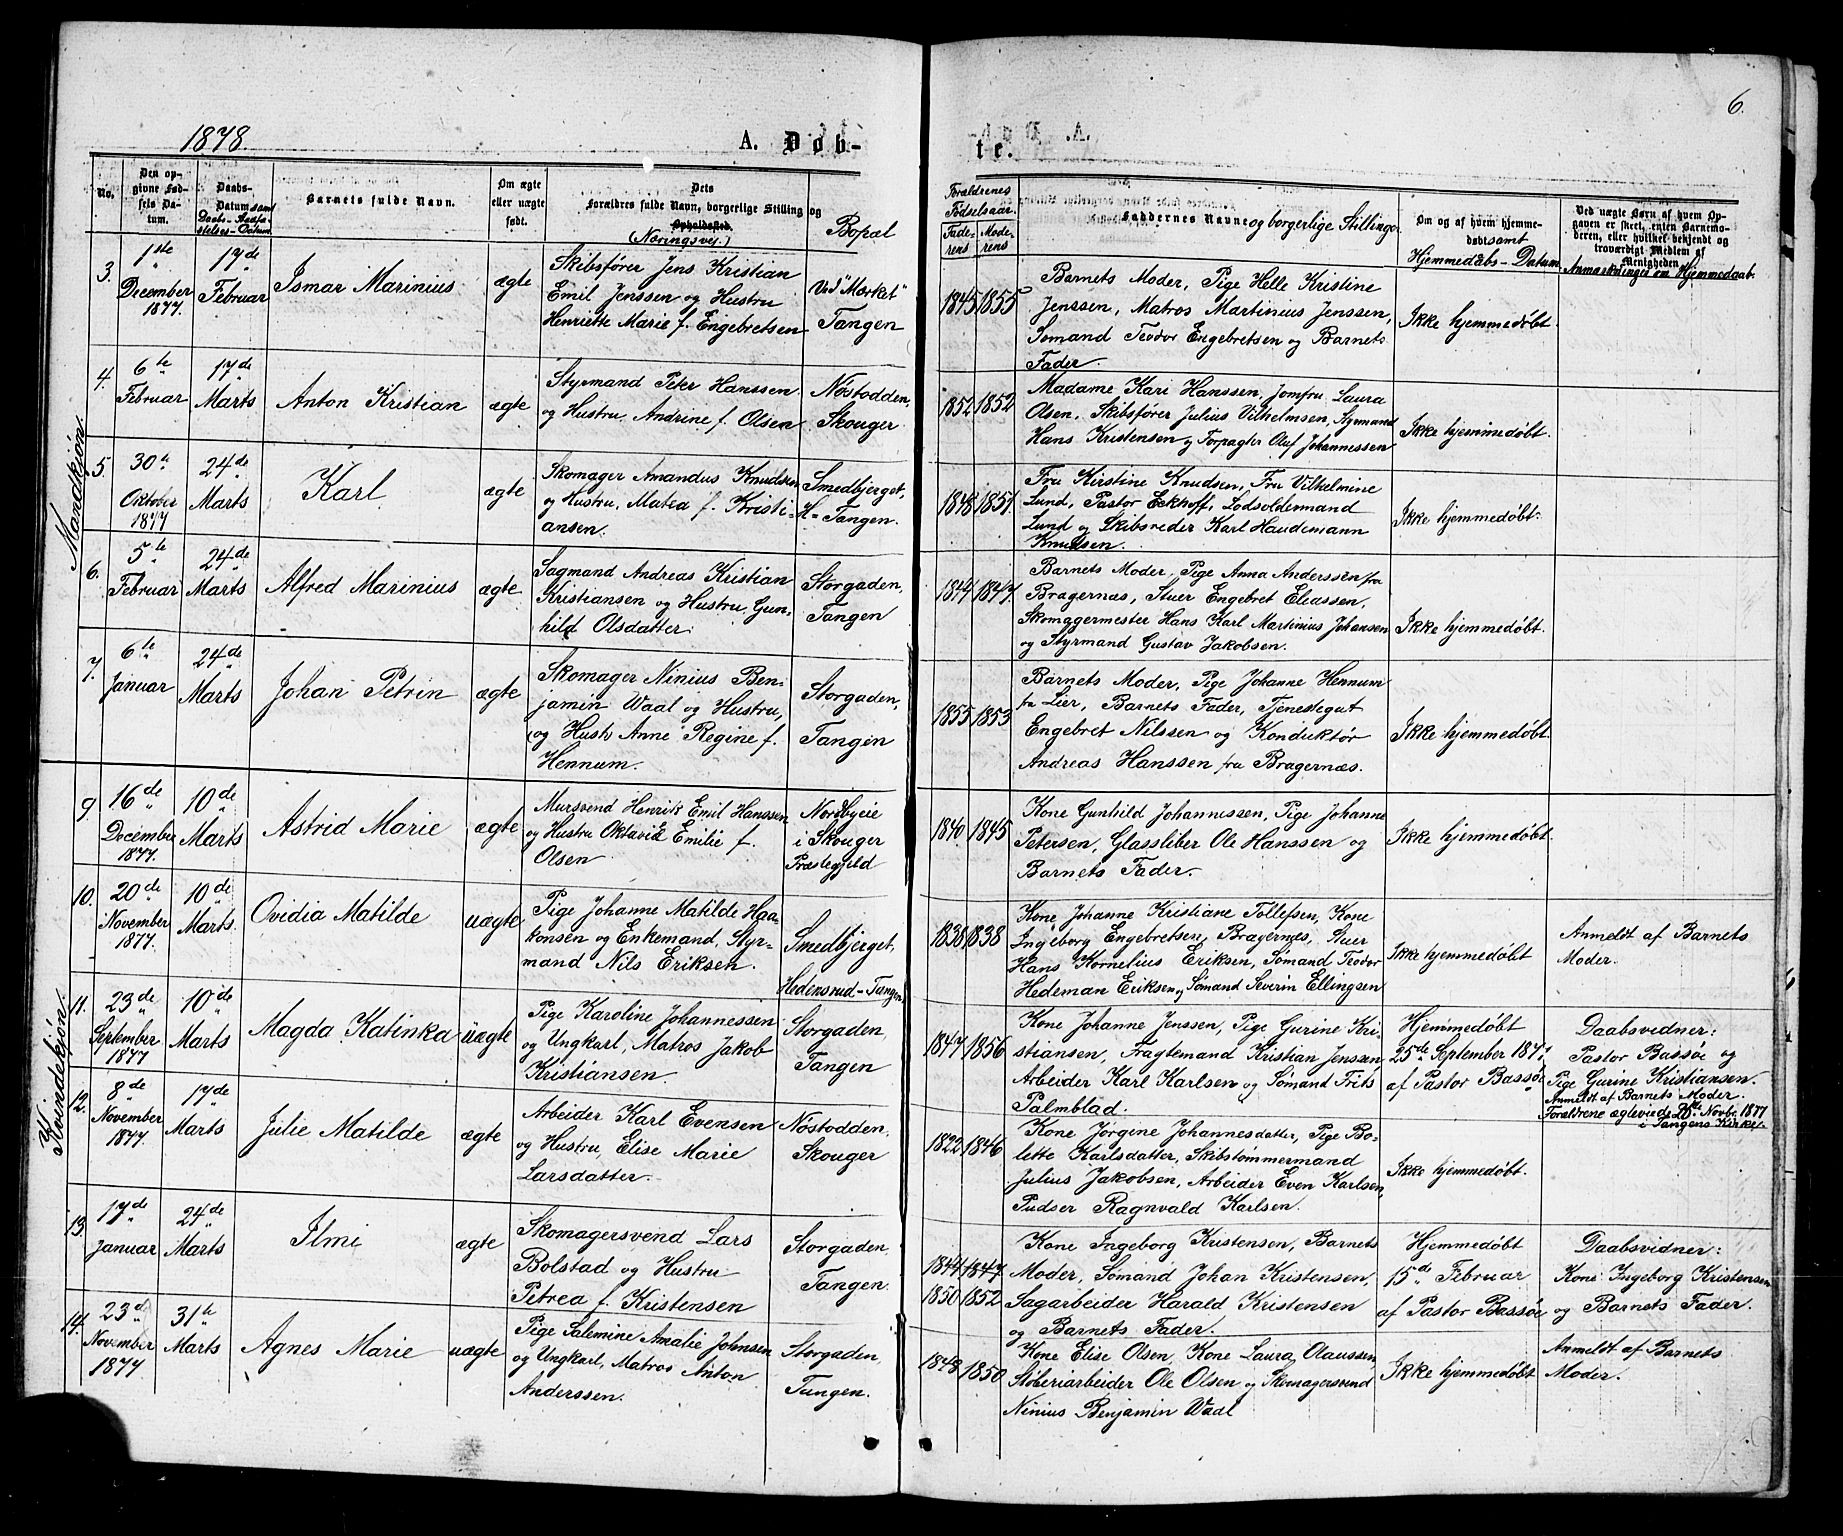 1878.
A. Døb-
No.
Den op-
givne Fød-
sels Da-
tum.
Daabs-
Datum samt
Daabs-Aadfæ-
stelses-Datum.
Barnets fulde Navn.
Om ægte
eller uægte
født.
Dets
Forældres fulde Navn, borgerlige Stilling og
Opholdssted.
(Næringsvej.)
Bopæl
Mandkjøn.
3.
1ste
December
1877.
17de
Februar
Ismar Marinius
ægte
Skibsfører Jens Kristian
Emil Jenssen og Hustru
Henriette Marie f. Engebretsen
Ved "Mærket"
Tangen
4.
6te
Februar
17de
Marts
Anton Kristian
ægte
Styrmand Peter Hanssen
og Hustru Andrine f. Olsen
Nøstodden,
Skouger
5
30te
Oktober
1877
24de
Marts
Karl
ægte
Skomager Amandus Knudsen
og Hustru, Matea f. Kristi-
ansen.
Smedbjerget,
H= Tangen.
6.
5te
Februar
24de
Marts
Alfred Marinius
ægte
Sagmand Andreas Kristian
Kristiansen og Hustru, Gun-
hild Olsdatter
Storgaden,
Tangen
7.
6te
Januar
24de
Marts
Johan Petrin
ægte
Skomager Ninius Ben-
jamin Waal og Hustru,
og Hustr Anne Regine f.
Hennum.
Storgaden,
Tangen
Kvindekjøn.
9
16de
December
1877.
10de
Marts
Astrid Marie
ægte
Mursvend Henrik Emil Hanssen
og Hustru Oktavia Emilie f.
Olsen
Nordbyeie
i Skouger
Præstegjeld
10.
20de
November
1877.
10de
Marts.
Ovidia Matilde
uægte
Pige Johanne Matilde Haa-
konsen og Enkemand, Styr-
mand Nils Eriksen.
Smedbjerget,
Hedensrud-Tangen
11.
23de
September
1877
10de
Marts
Magda Katinka
uægte
Pige Karoline Johannessen
og Ungkarl, Matros Jakob
Kristiansen.
Storgaden,
Tangen
12.
8de
November
1877.
17de
Marts
Julie Matilde
ægte
Arbeider Karl Evensen
og Hustru, Elise Marie
Larsdatter
Nøstodden,
Skouger
13.
17de
Januar
24de
Marts
Ilmi
ægte
Skomagersvend Lars
Bolstad og Hustru
Petrea f. Kristensen
Storgaden,
Tangen.
14.
23de
November
1877
31te
Marts
Agnes Marie
uægte
Pige Salemine Amalie Johnsen
og Ungkarl, Matros Anton
Anderssen.
Storgaden,
Tangen.
6.
te.
Forældrenes
Fødselsaar.
Fade-
rens
Mode-
rens
Faddernes Navne og borgerlige Stilling.
Om og af hvem hjemme-
døbt samt
Hjemmedåbs-Datum
Ved uægte Børn af hvem Op-
gaven er skeet, enten Barnemo-
deren, eller hvilket bekjendt og
troværdigt Medlem af
Menigheden
Anmærkninger om Hjemmedaab.
1845
1855
Barnets Moder, Pige Helle Kristine
Jenssen, Matros Martinius Jenssen,
Sømand Teodor Engebretsen og Barnets
Fader.
Ikke hjemmedøbt.
1852
1852
Madame Kari Hanssen, Jomfru Laura
Olsen, Skibsfører Julius Vilhelmsen, Styrmand
Hans Kristensen og Forpagter Oluf Johannessen
Ikke hjemmedøbt.
1848
1851.
Fru Kirstine Knudsen, Fru Vilhelmine
Lund, Pastor Eckhoff, Lodsoldermand
Lund og Skibsreder Karl Haudemann
Knudsen.
Ikke hjemmedøbt.
1844
1847.
Barnets Moder, Pige Anna Anderssen fra
Bragernæs, Stuer Engebret Eliassen,
Skomagermester Hans Karl Martinius Johansen
og Styrmand Gustav Jakobsen.
Ikke hjemmedøbt.
1855
1853
Barnets Moder, Pige Johanne Hennum
fra Lier, Barnets Fader, Tjenestegut
Engebret Nilssen og Konduktør
Andreas Hanssen fra Bragernæs.
Ikke hjemmedøbt.
1840.
1845
Kone Gunhild Johannessen, Pige Johanne
Petersen, Glassliber Ole Hanssen og
Barnets Fader.
Ikke hjemmedøbt.
1838
1838
Kone Johanne Kristiane Tollefsen, Kone
Ingeborg Engebretsen, Bragernæs, Stuer
Hans Kornelius Eriksen, Sømand Teodor
Hedeman Eriksen og Sømand Severin Ellingsen
Ikke hjemmedøbt
Anmeldt af Barnets
Moder.
1847
1856
Kone Johanne Jenssen, Pige Gurine Kri-
stiansen, Fragtemand Kristian Jenssen,
Arbeider Karl Karlsen og Sømand Frits
Palmblad.
Hjemmedøbt
25de September 1877
af Pastor Bassøe
Daabsvidner:
Pastor Bassøe og
Pige Gurine Kristiansen.
Anmeldt af Barnets Moder.
Forældrene ægteviede 25de Novbr. 1877
i Tangens Kirke.
1822
1846
Kone Jørgine Johannesdatter, Pige Bo-
lette Karlsdatter, Skibstømmermand
Julius Jakobsen, Arbeider Even Karlsen,
Pudser Ragnvald Karlsen.
Ikke hjemmedøbt.
1844
1847
1850
1852
Kone Ingeborg Kristensen, Barnets
Moder, Sømand Johan Kristensen,
Sagarbeider Harald Kristensen
og Barnets Fader.
Hjemmedøbt
15de Februar
af Pastor Bassøe
Daabsvidner:
Kone Ingeborg Kristensen
og Barnets Fader.
1848
1850
Kone Elise Olsen, Kone Laura Olaussen,
Støberiarbeider Ole Olsen og Skomagersvend
Ninius Benjamin Waal
Ikke hjemmedøbt
Anmeldt af Barnets
Moder.